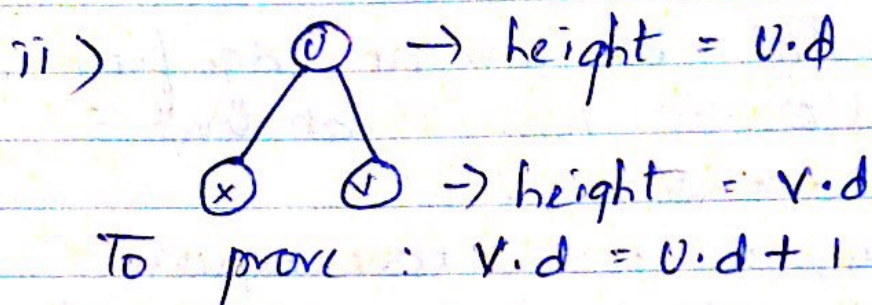 ii) U → height = U.d
x v → height = v.d
To prove : v.d = U.d + 1